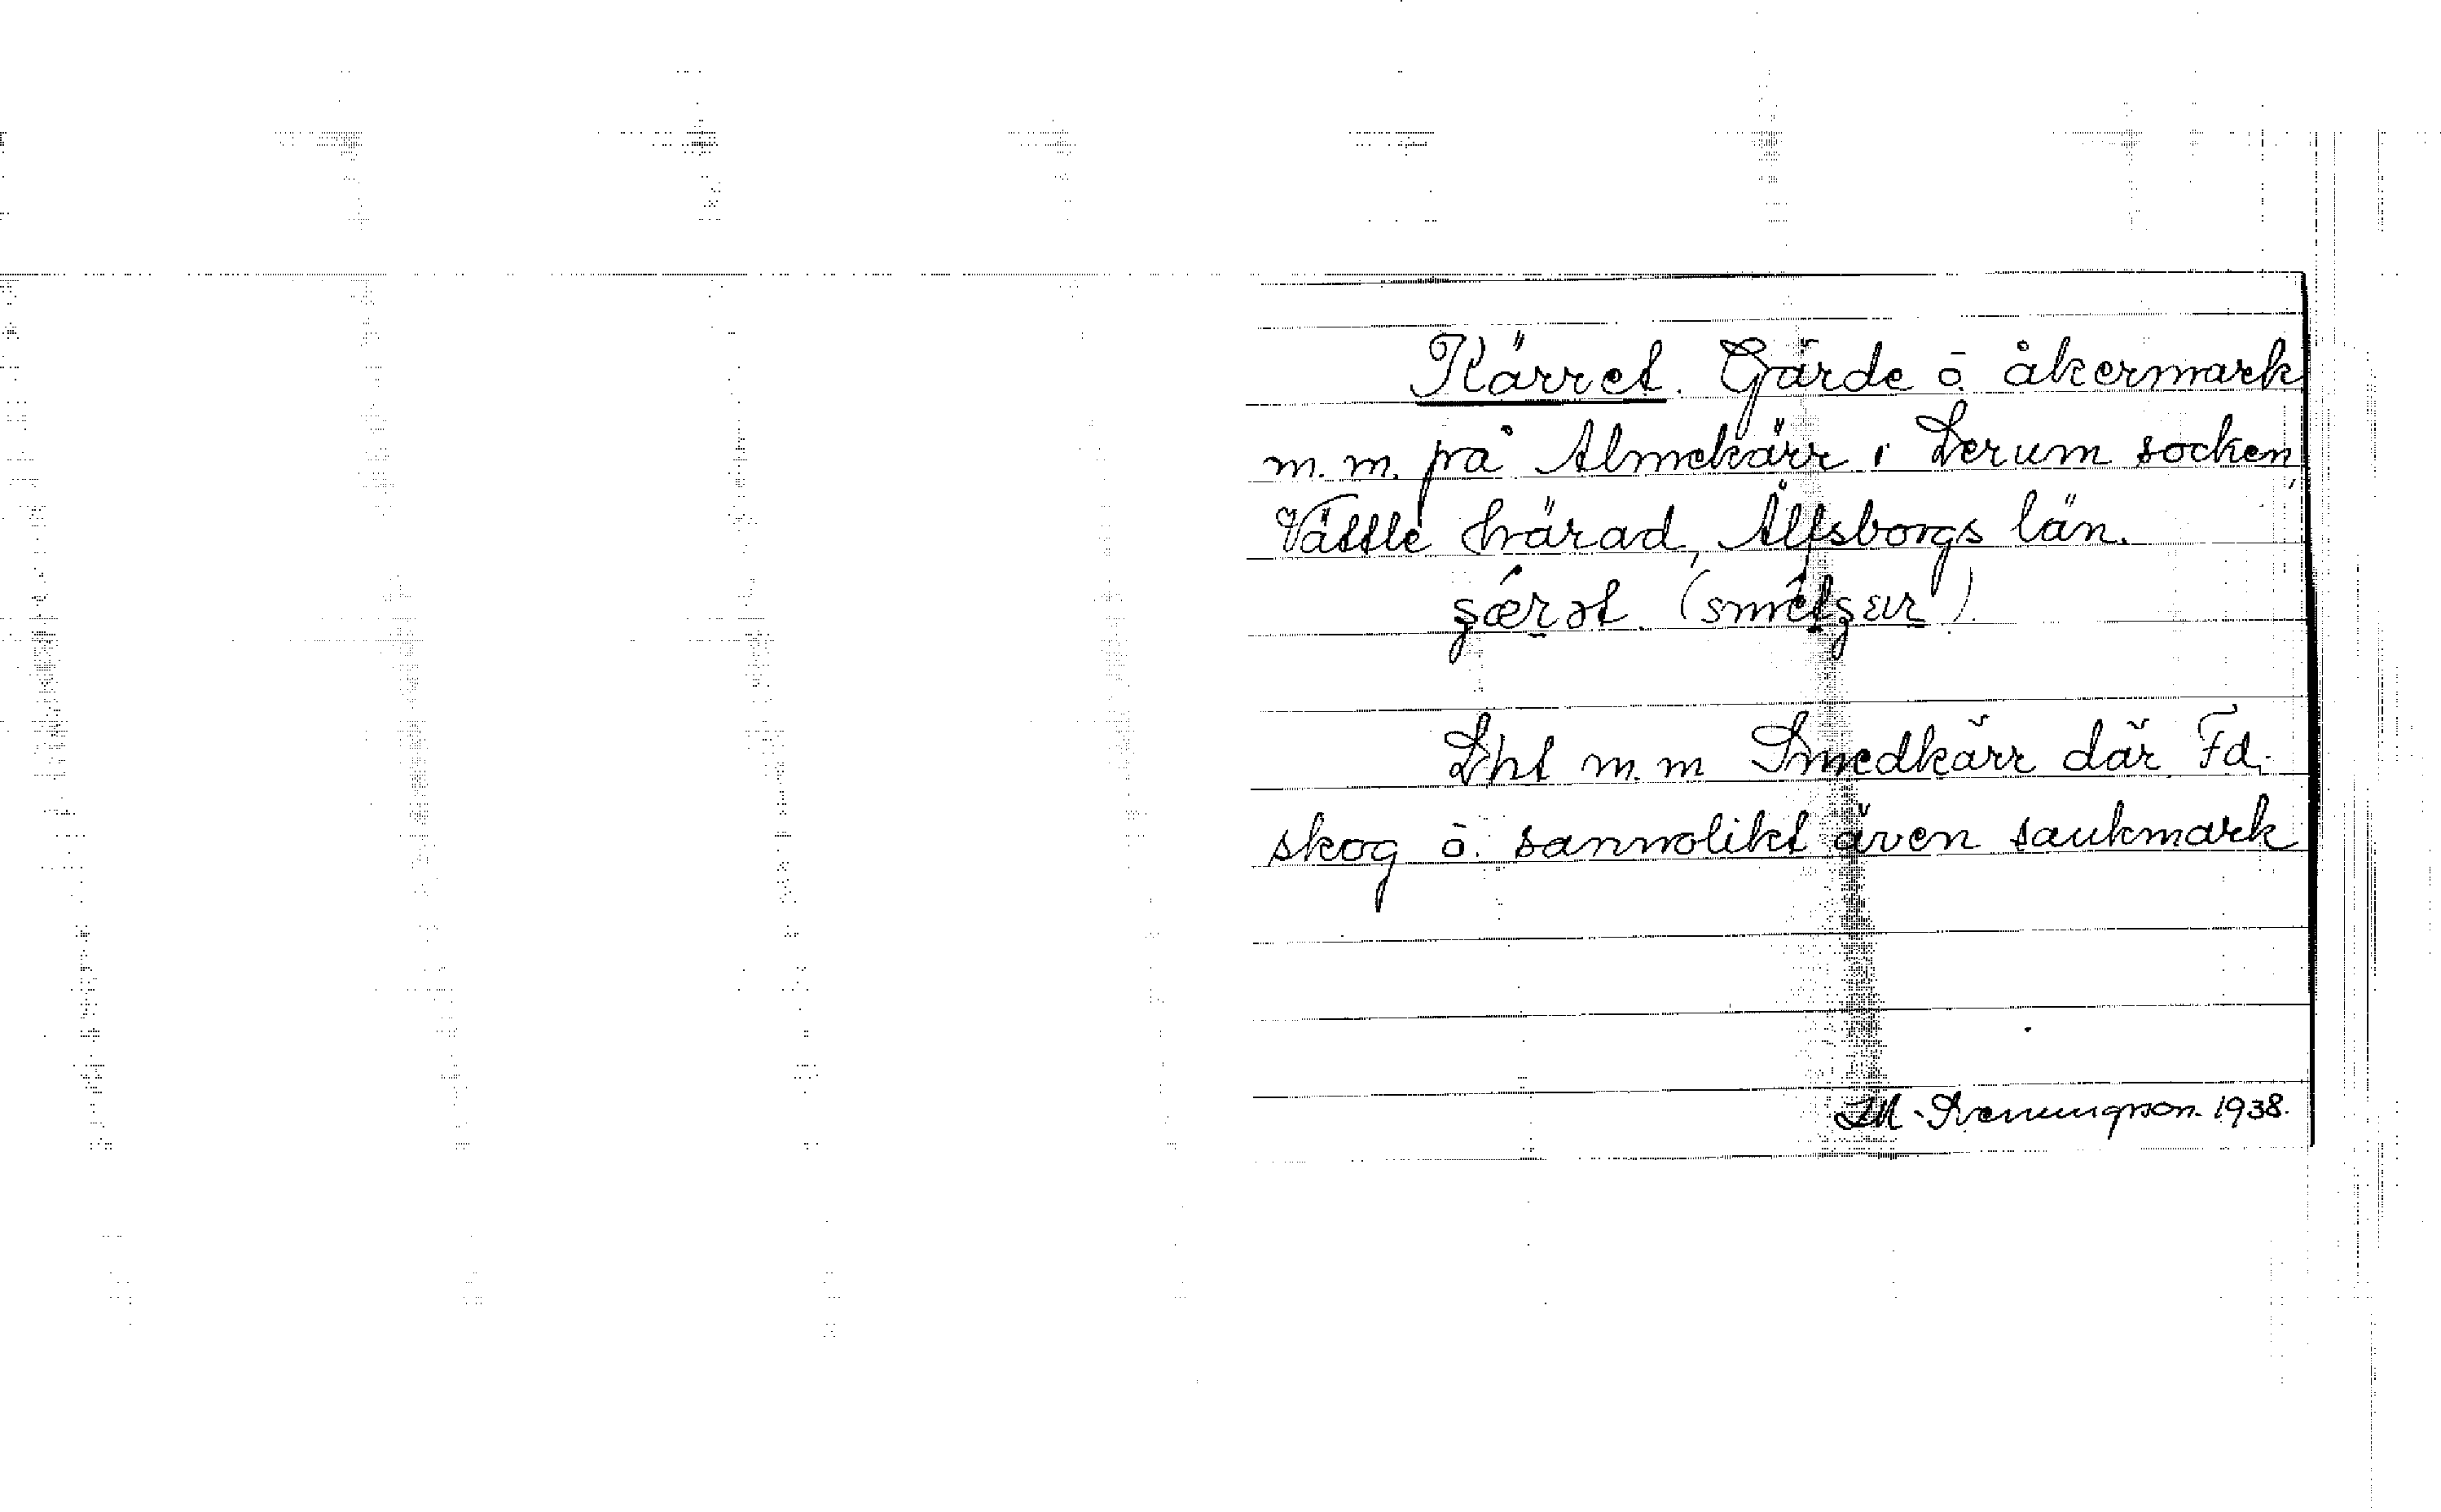 Kärret. Gärde o. åkermark
m.m. på Almekärr i Lerum socken,
Vättle härad, Älfsborgs län.
şærət. (smétşær).
Lht m.m Smedkärr där Fd.
skog o. sannolikt även sankmark
1938.